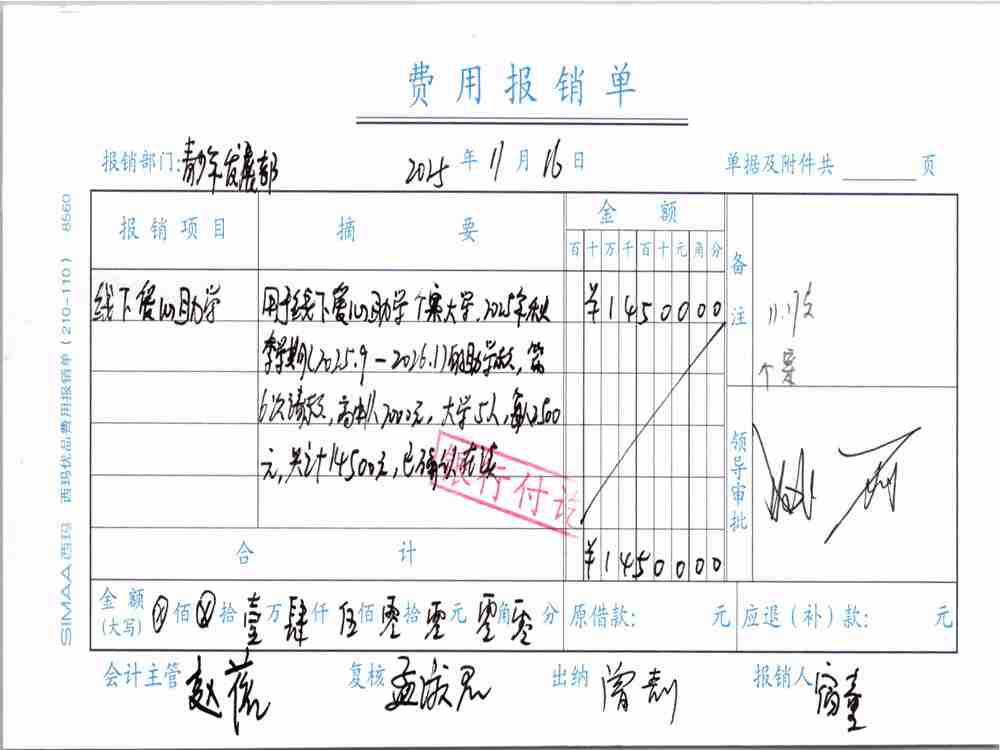 费用报销单
报销部门:青少年发展部 2025年11月16日 单据及附件共 页
报销项目 摘要 金额 备注
百十万千百十元角分
线下爱心助学 用于线下爱心助学个案大学,2025年秋 ¥1450000
季学期(2025.9-2026.1)的助学款,第
6次请款,高中1人2000元,大学5人,每人2500
元,共计14500元,已确认在读
11.17支
个案
银行付讫
领导审批
合计 ¥1450000
金额(大写) ⓧ佰ⓧ拾壹万肆仟伍佰零拾零元零角零分 原借款: 元 应退(补)款: 元
会计主管 赵 复核 孟淑君 出纳 曾 报销人
SIMAA西玛 西玛优品费用报销单(210-110) 8560